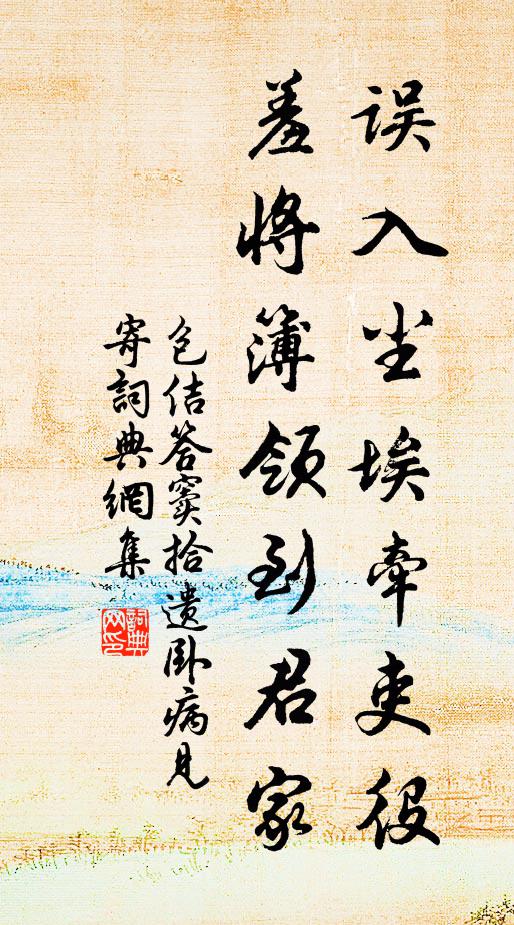 误入尘埃牵吏役
羞将簿领到君家
包佶答窦拾遗卧病见
寄詞典網集
詞典
网印